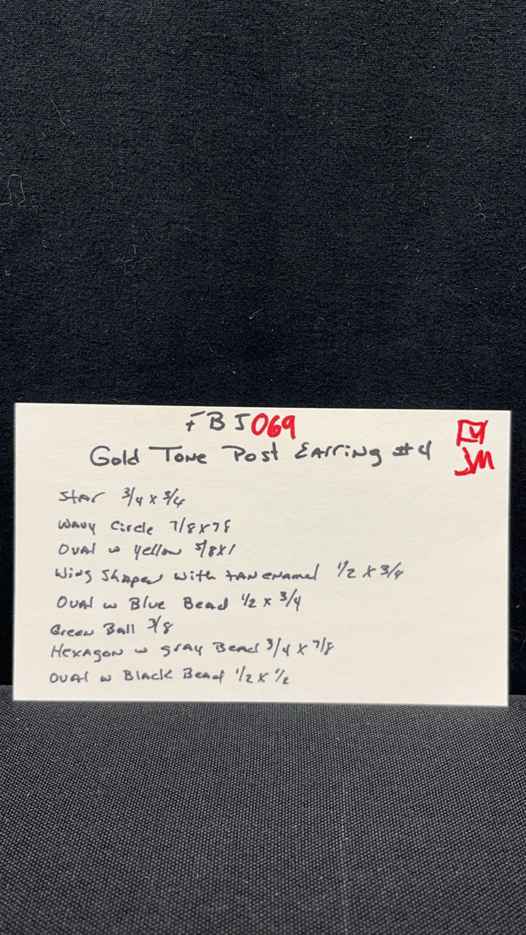 FBJ069
Gold Tone Post Earring #4
JM
Star 3/4 x 3/4
Wavy Circle 7/8 x 7/8
Oval w Yellow 5/8 x 1
Wing Shaped with tan enamel 1/2 x 3/4
Oval w Blue Bead 1/2 x 3/4
Green Ball 3/8
Hexagon w gray Bead 3/4 x 7/8
Oval w Black Bead 1/2 x 1/2